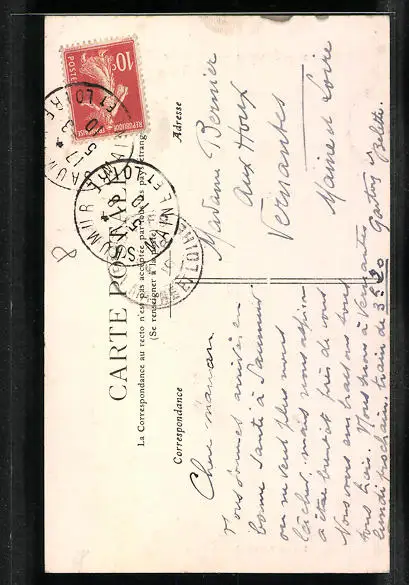 CARTE POSTALE
La Correspondance au recto n'est pas acceptée par tous les pays étrangers
(Se renseigner à la Poste)
Correspondance
Adresse
RÉPUBLIQUE FRANÇAISE
10c
POSTES
SAUMUR
MAINE ET LOIRE
Madame Bernier
Aux Houx
Vernantes
Maine et Loire
Chère maman
Nous sommes arrivés en
bonne santé à Saumur
on ne veut plus nous
lâcher mais nous
à être bientôt près de vous
Nous vous embrassons tous
tous trois. Nous à Vernantes
lundi prochain train de 3h20 Gaston et
8